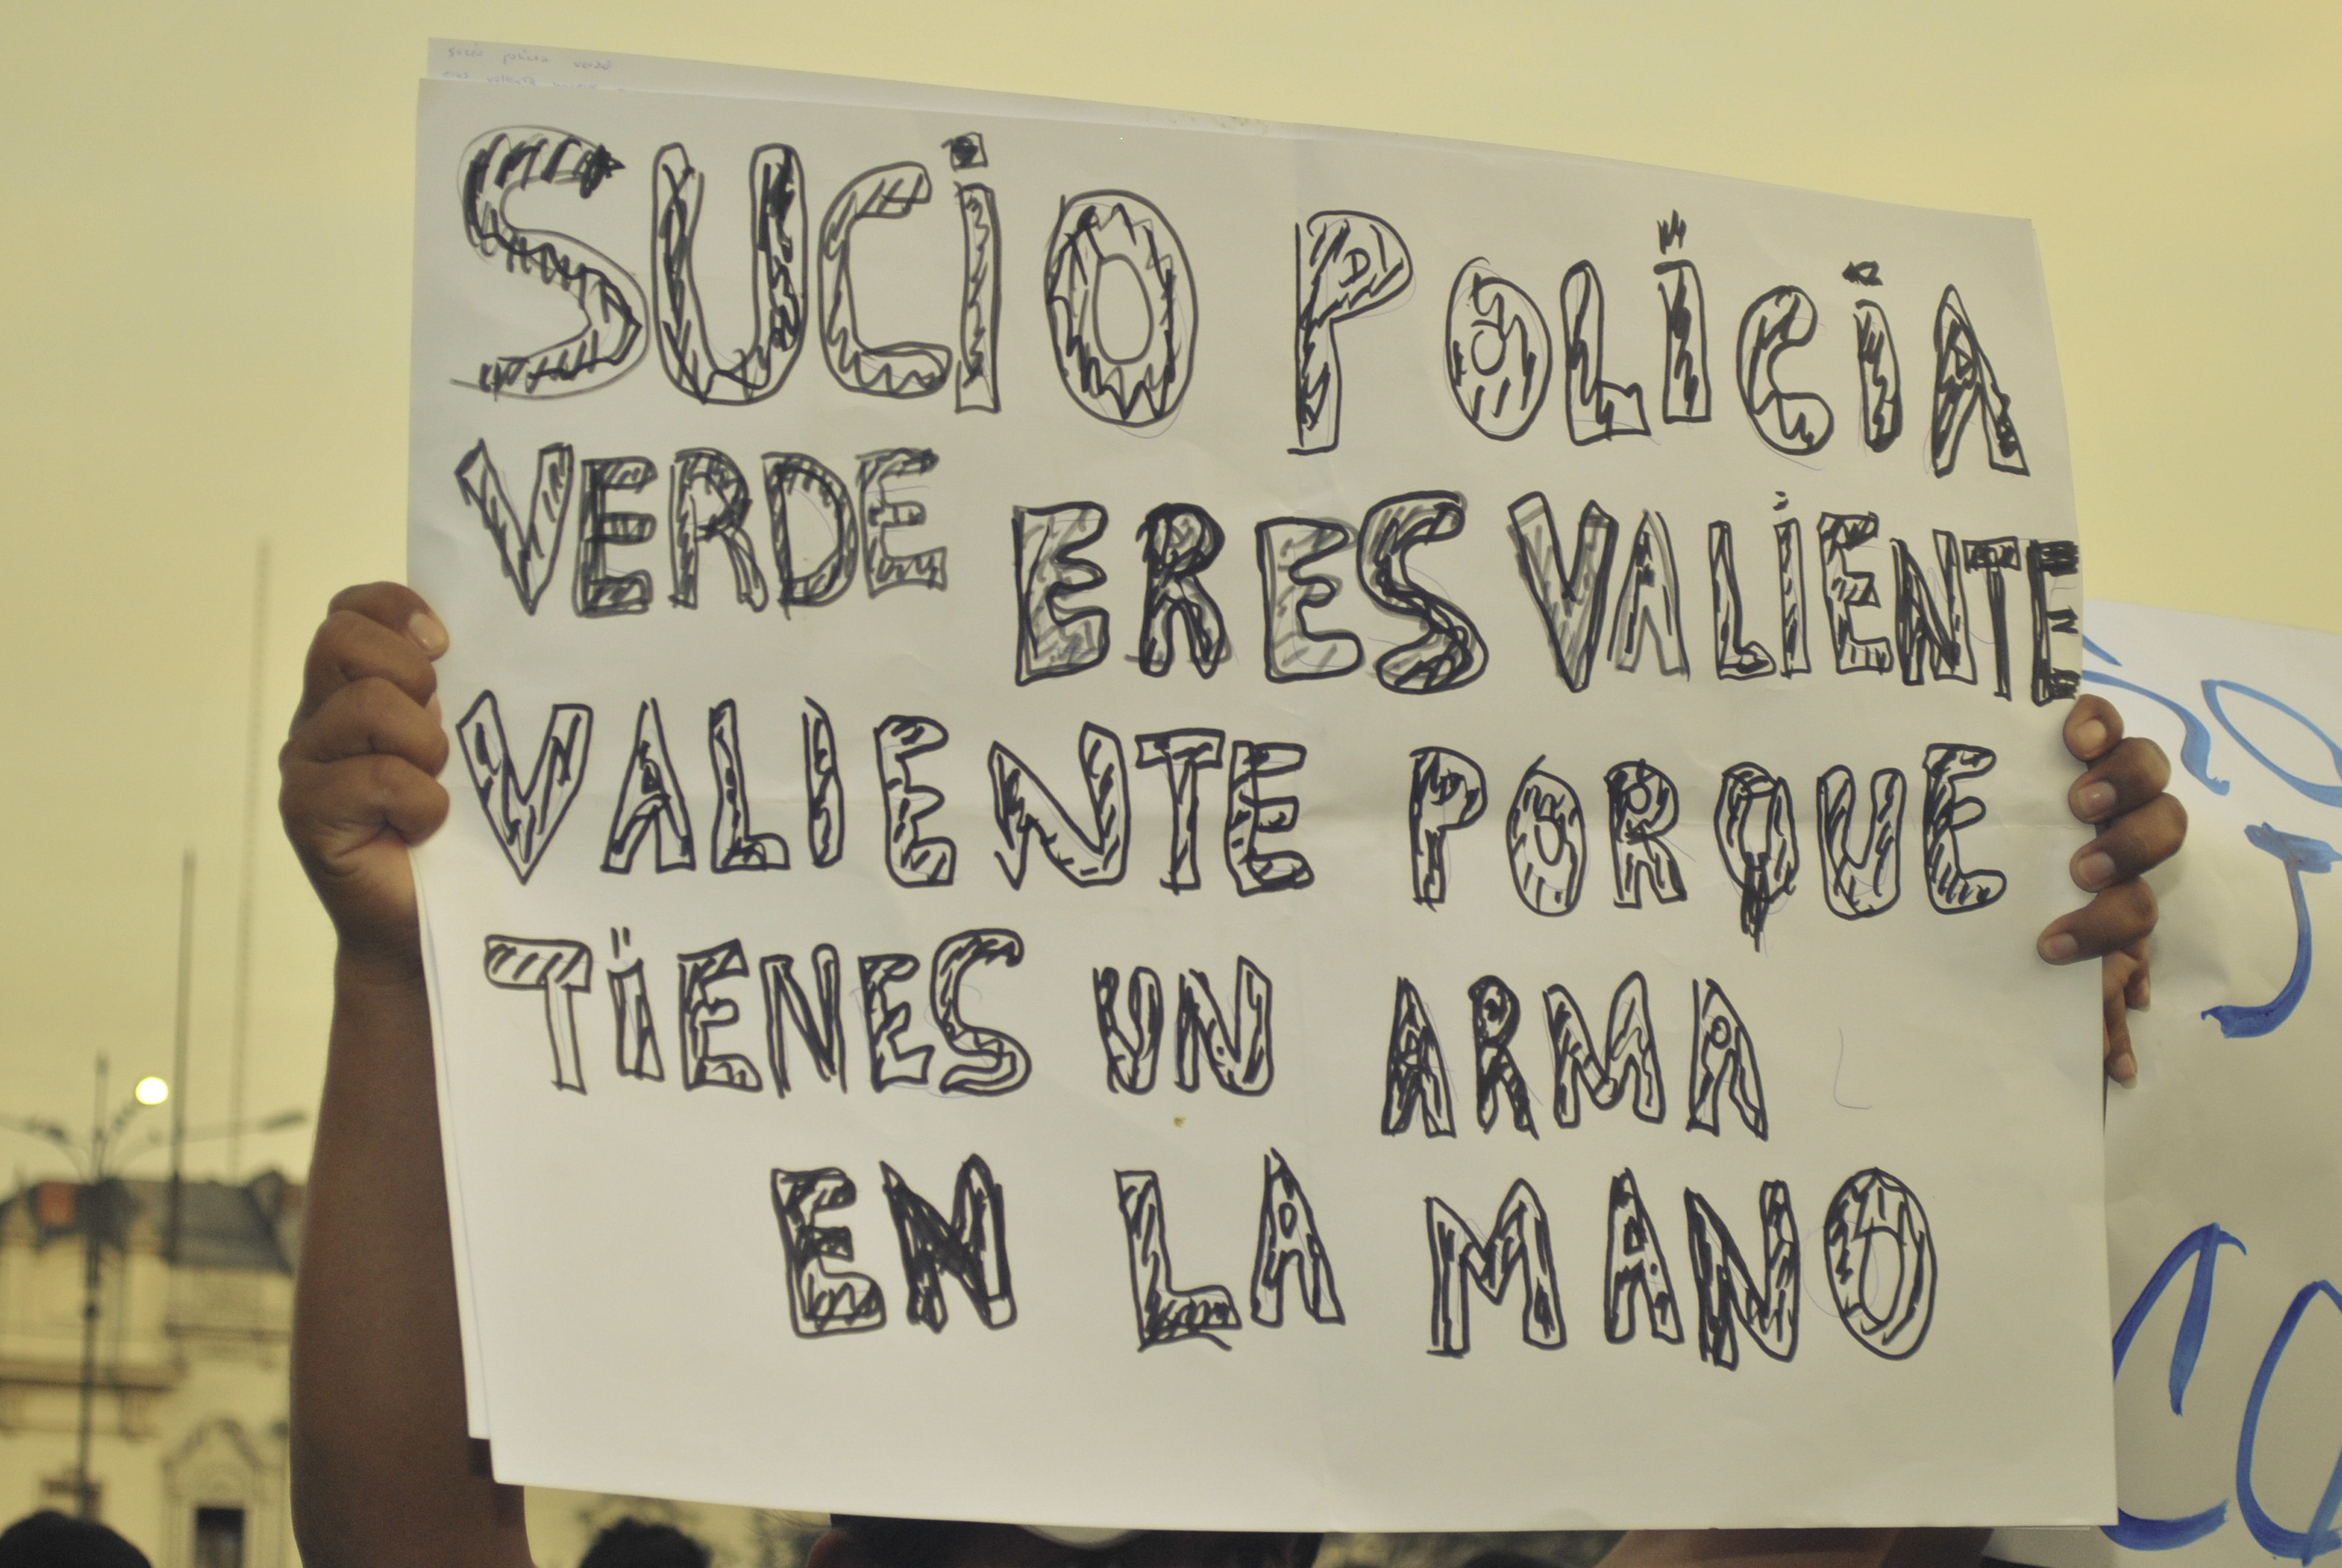 SUCIO POLICIA
VERDE ERES VALIENTE
VALIENTE PORQUE
TIENES UN ARMA
EN LA MANO